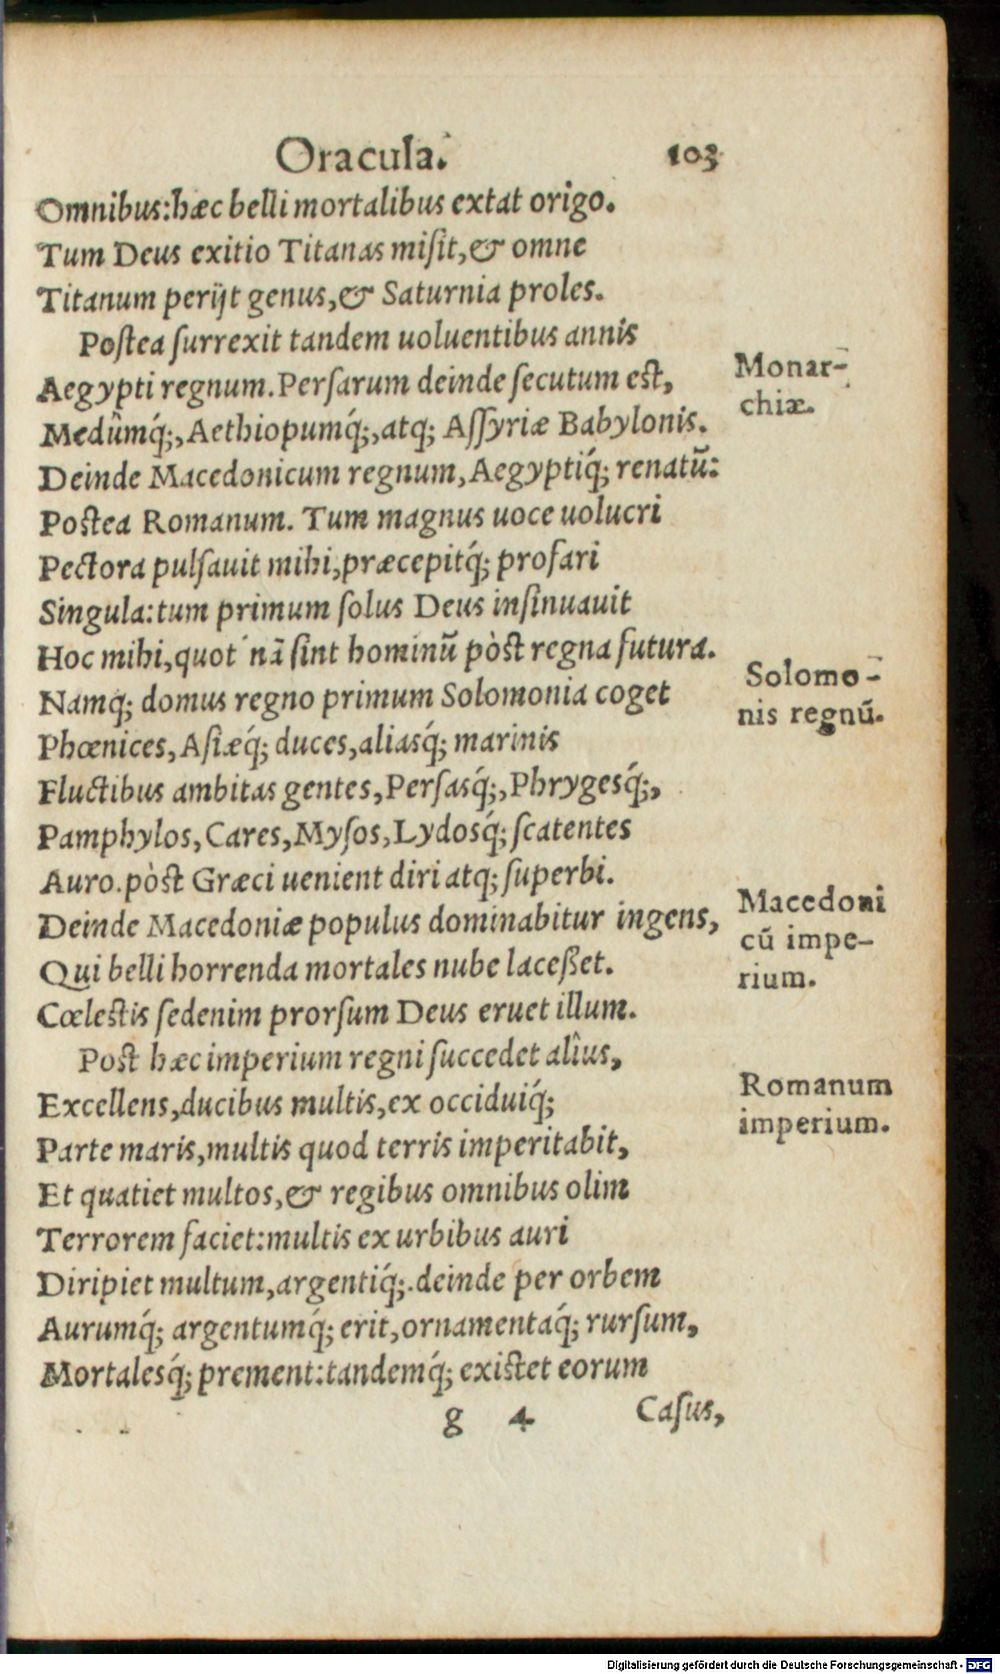 Oracula. 103
Omnibus: hæc belli mortalibus extat origo.
Tum Deus exitio Titanas misit, & omne
Titanum perijt genus, & Saturnia proles.
Postea surrexit tandem uoluentibus annis
Aegypti regnum. Persarum deinde secutum est,
Monar-
chiæ.
Medûmq́;, Aethiopumq́;, atq; Assyriæ Babylonis.
Deinde Macedonicum regnum, Aegyptiq́; renatũ:
Postea Romanum. Tum magnus uoce uolucri
Pectora pulsauit mihi, præcepitq́; profari
Singula: tum primum solus Deus insinuauit
Hoc mihi, quot nã sint hominũ pòst regna futura.
Solomo-
nis regnũ.
Namq; domus regno primum Solomonia coget
Phœnices, Asiæq́; duces, aliasq́; marinis
Fluctibus ambitas gentes, Persasq́;, Phrygesq́;,
Pamphylos, Cares, Mysos, Lydosq́; scatentes
Auro. pòst Græci uenient diri atq; superbi.
Deinde Macedoniæ populus dominabitur ingens,
Macedoni
cũ impe-
rium.
Qui belli horrenda mortales nube laceßet.
Cœlestis sedenim prorsum Deus eruet illum.
Post hæc imperium regni succedet alîus,
Romanum
imperium.
Excellens, ducibus multis, ex occiduiq́;
Parte maris, multis quod terris imperitabit,
Et quatiet multos, & regibus omnibus olim
Terrorem faciet: multis ex urbibus auri
Diripiet multum, argentiq́;. deinde per orbem
Aurumq́; argentumq́; erit, ornamentaq́; rursum,
Mortalesq́; prement: tandemq́; existet eorum
g 4 Casus,
Digitalisierung gefördert durch die Deutsche Forschungsgemeinschaft - DFG